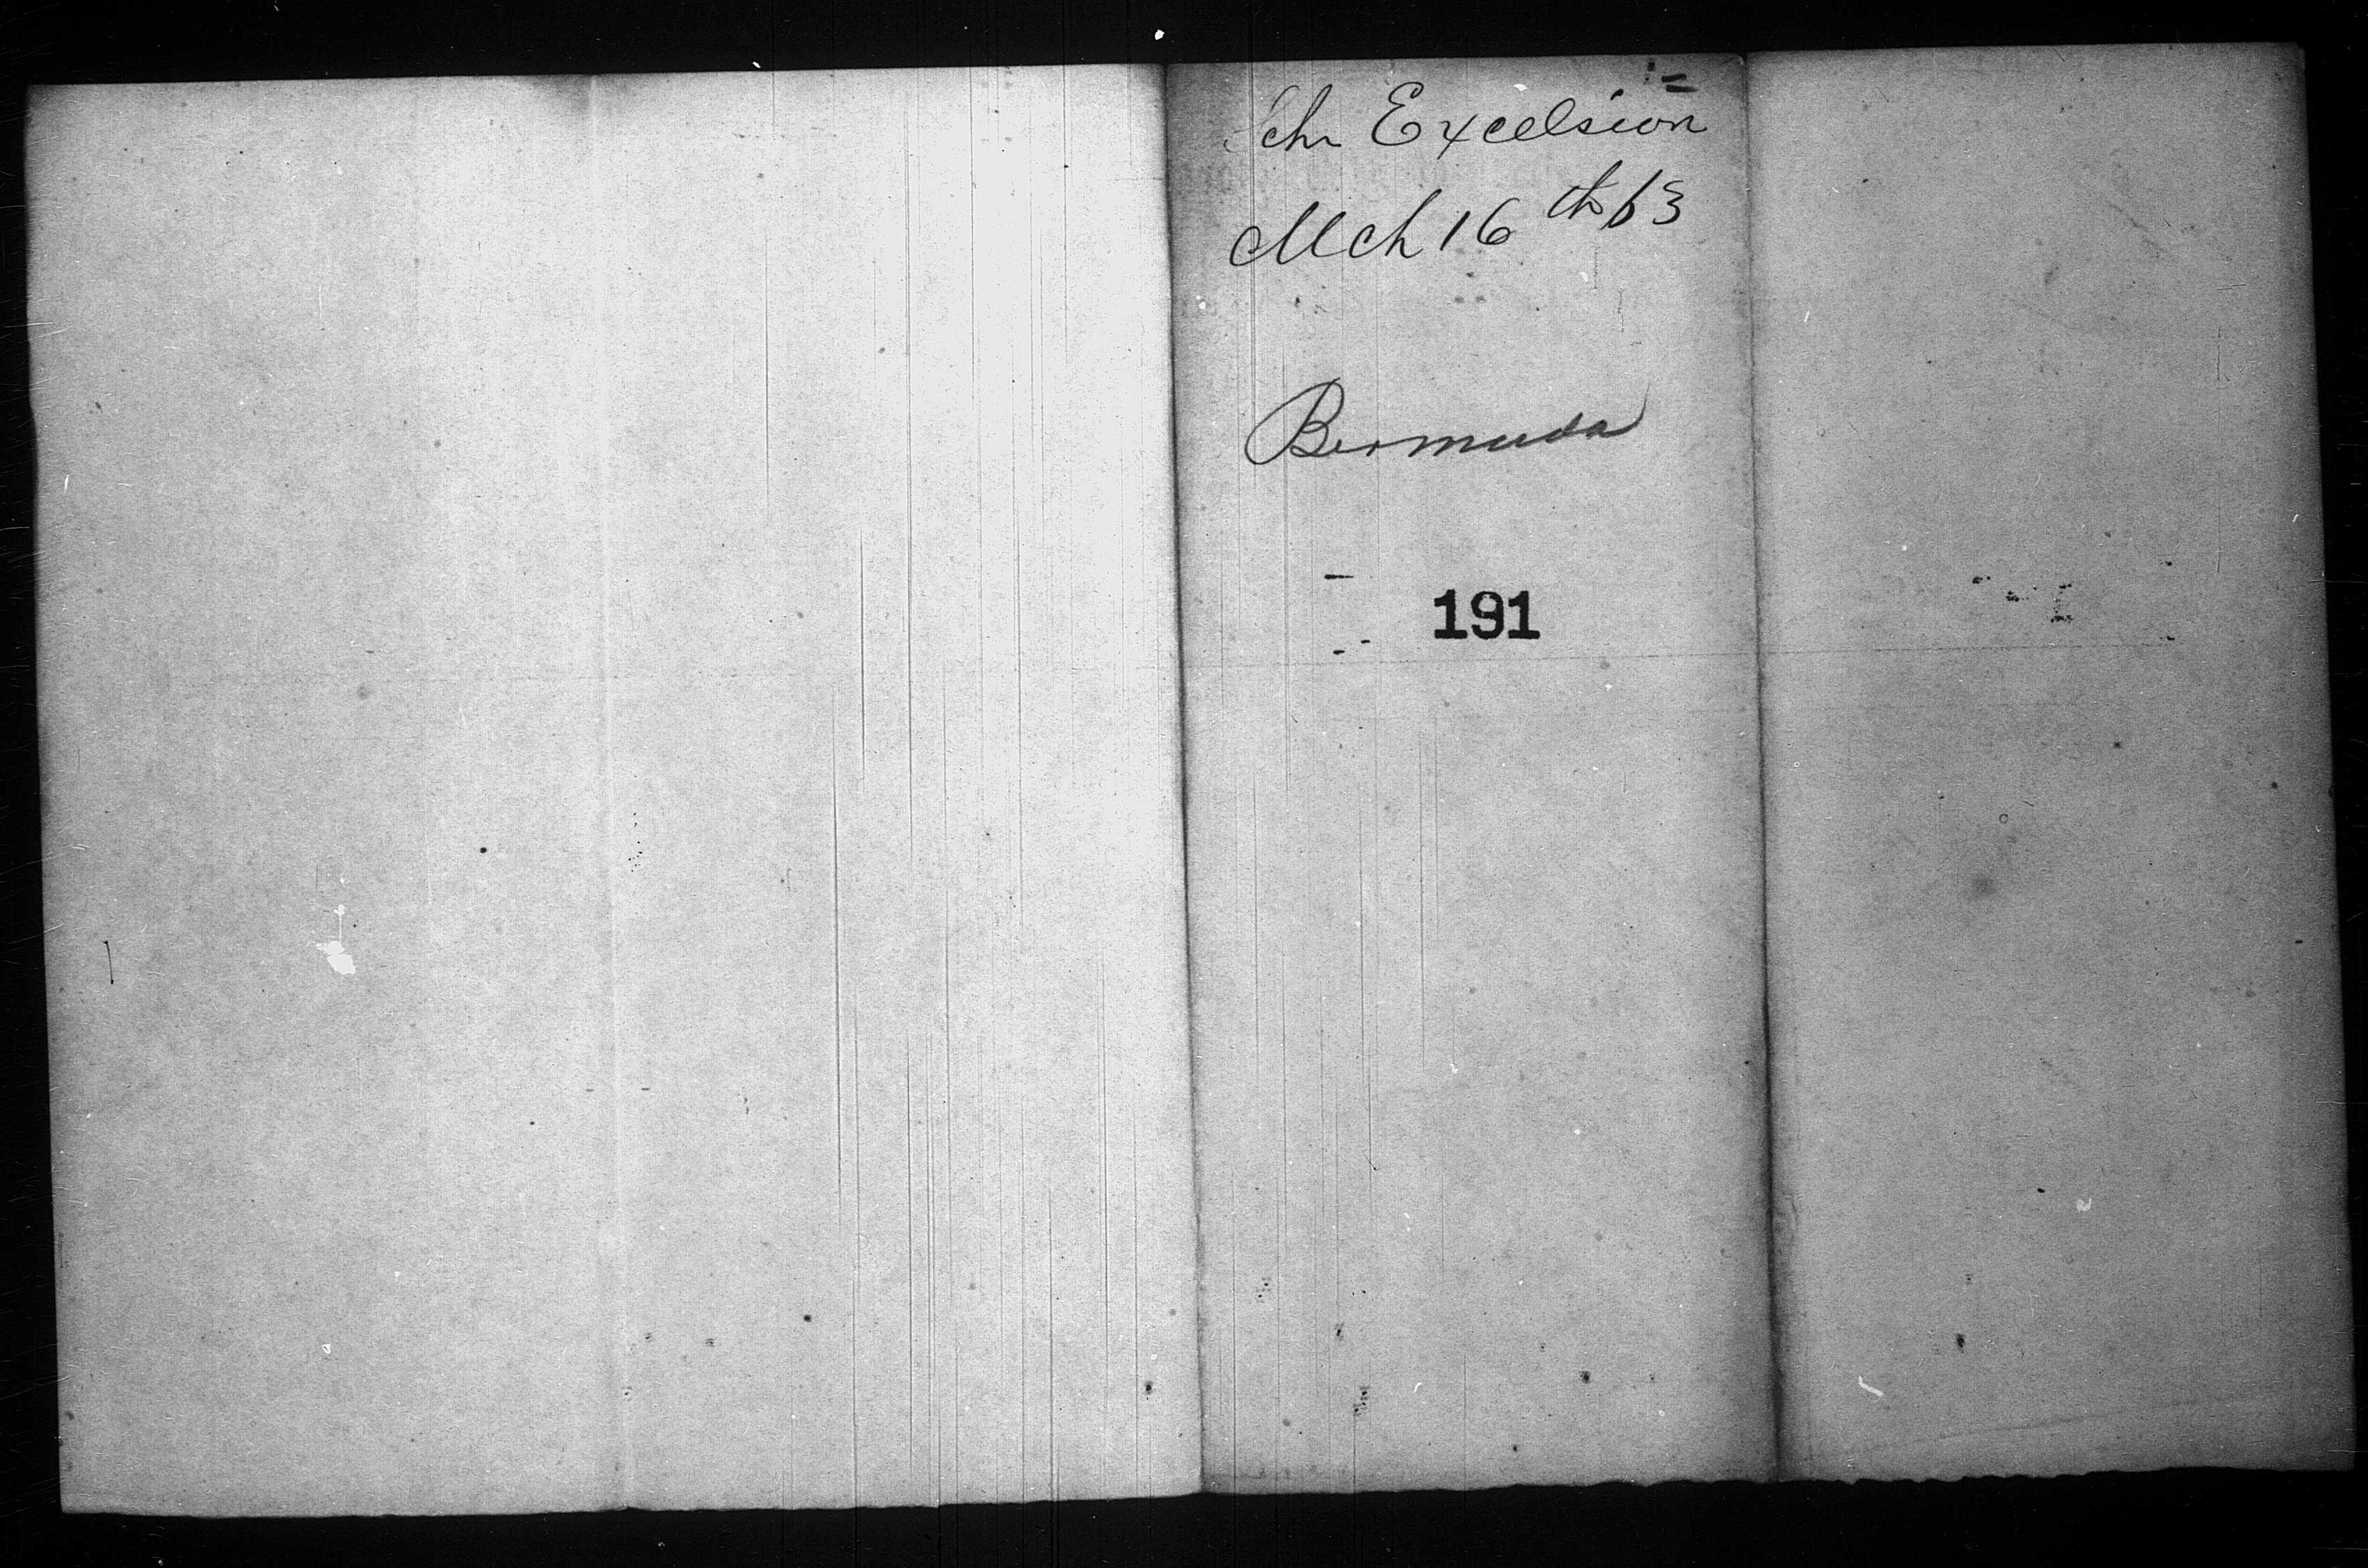 Schr Excelsior
Mch 16th 63
Bermuda
191